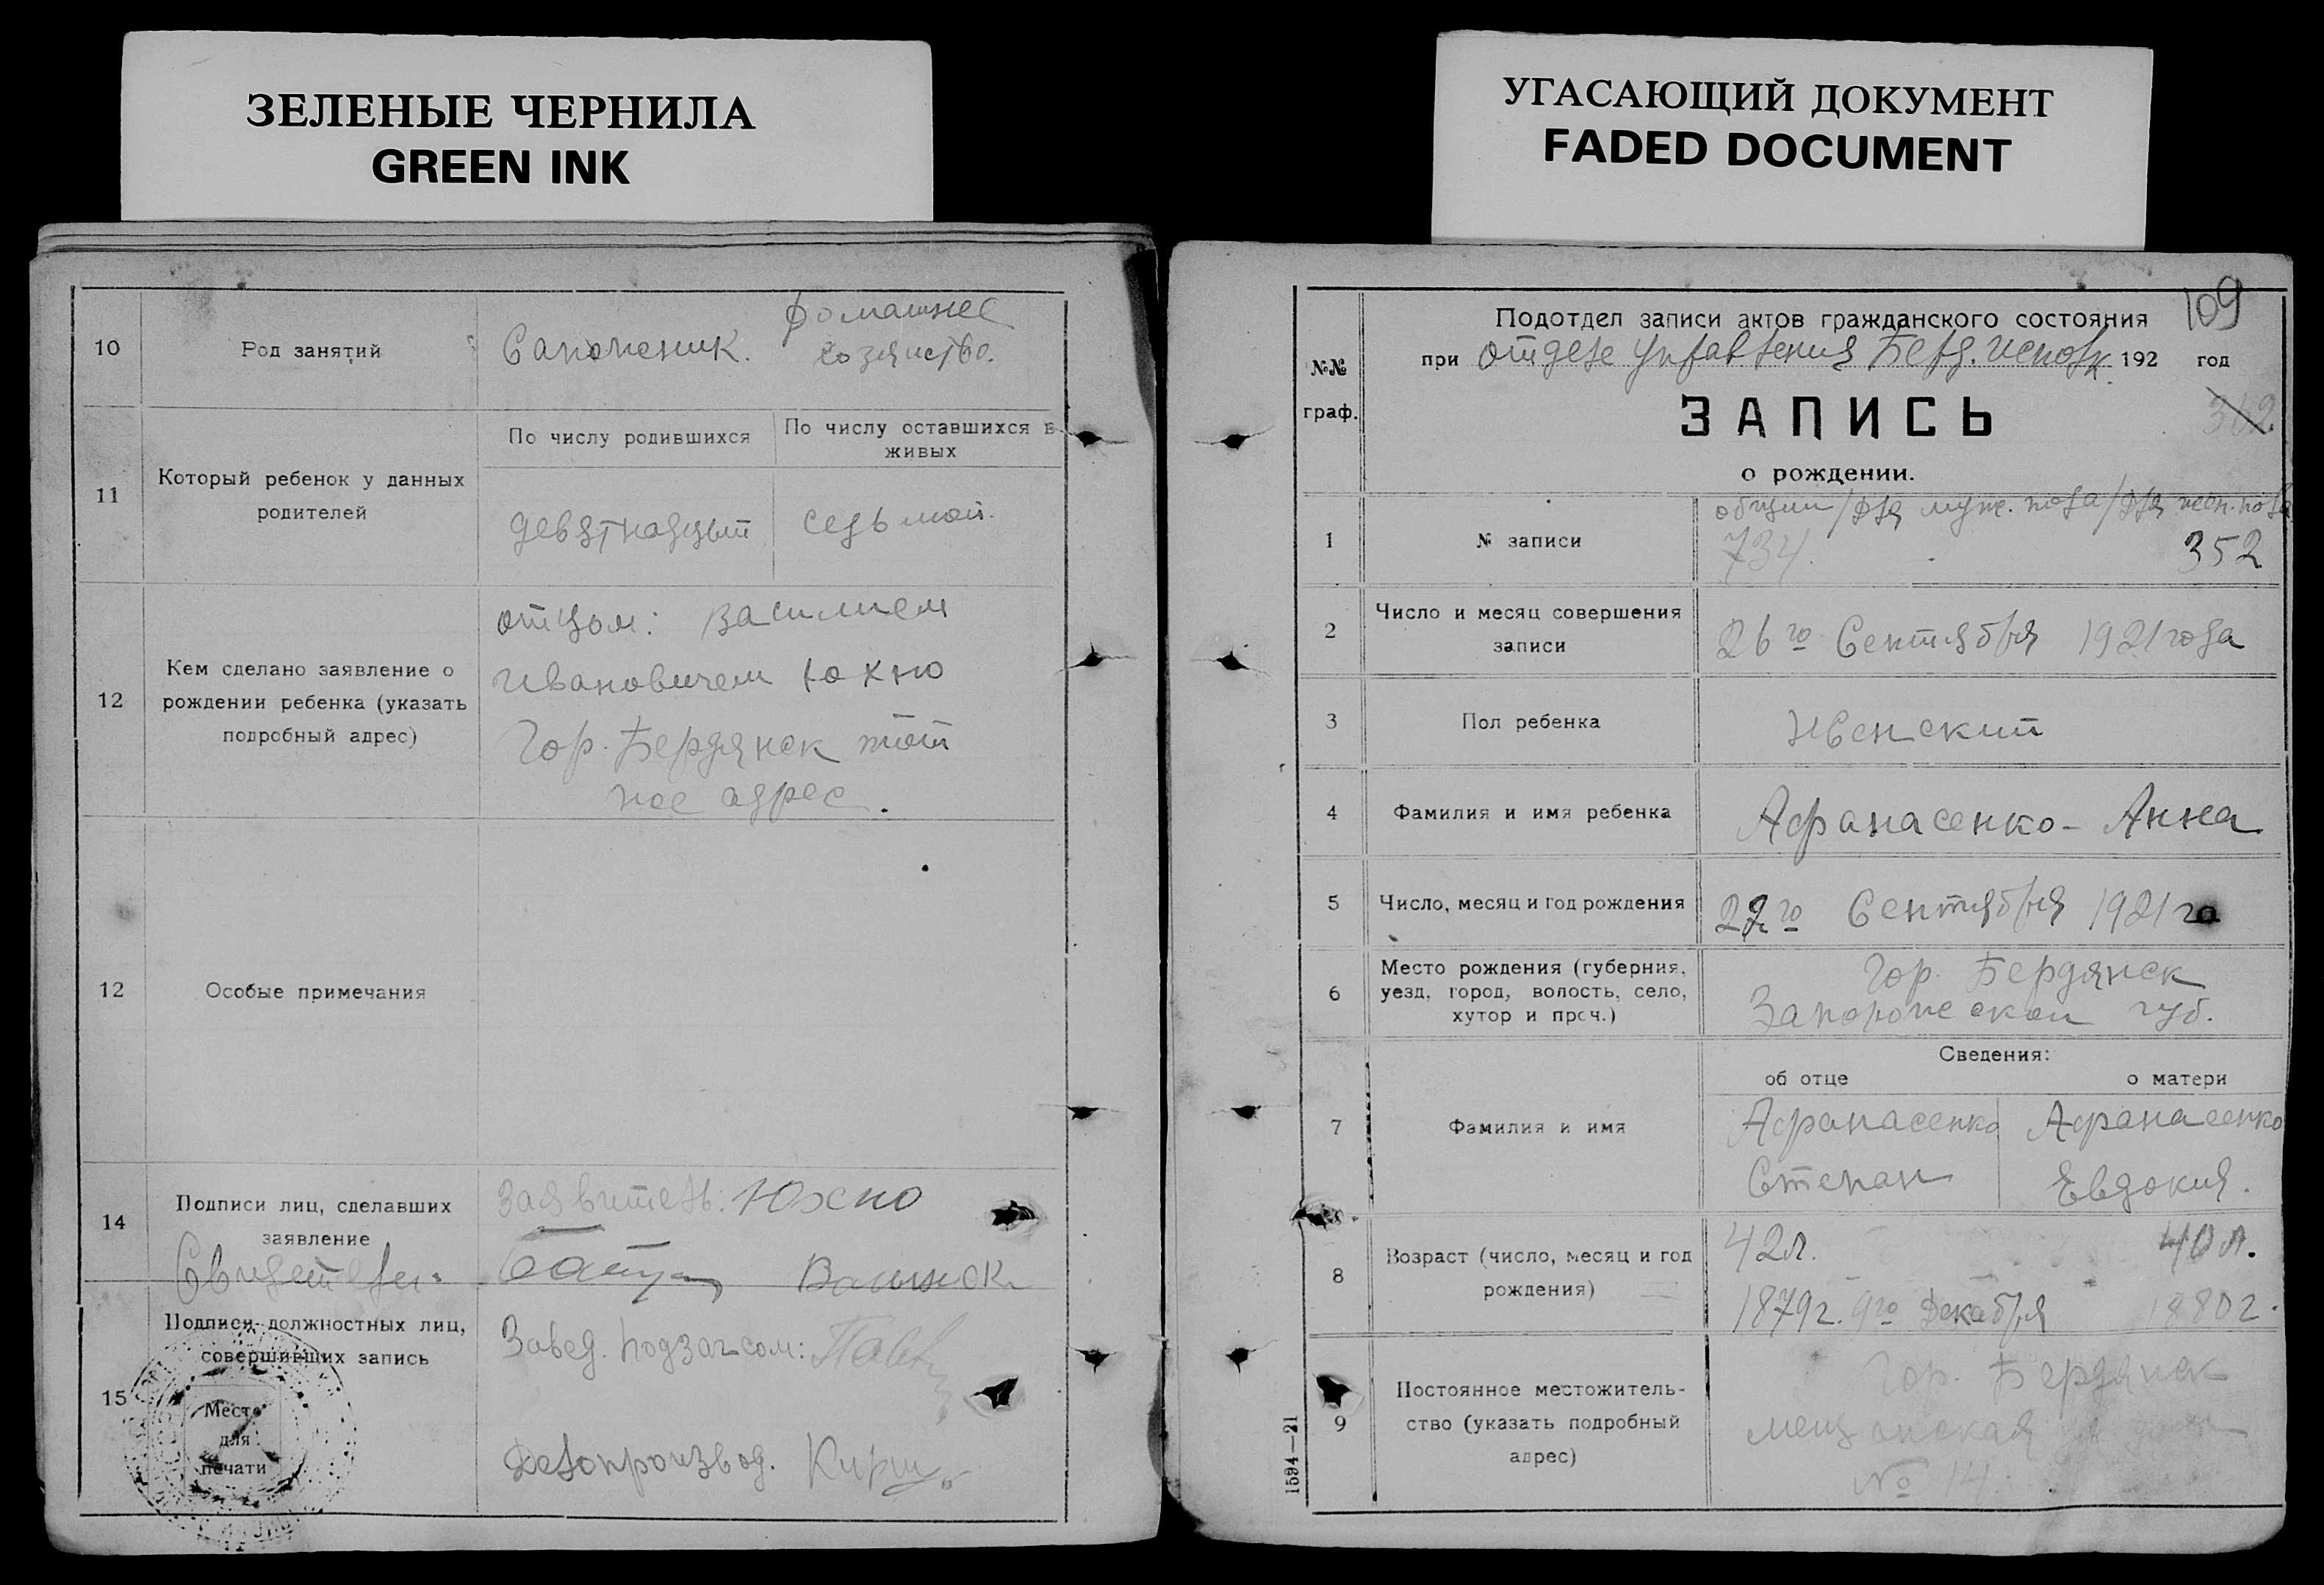 ЗЕЛЕНЫЕ ЧЕРНИЛА
GREEN INK
10
Род занятий
Сапожник.
домашнее
хозяйство.
11
Который ребенок у данных
родителей
По числу родившихся
По числу оставшихся в
живых
девятнадцатый
седьмой.
12
Кем сделано заявление о
рождении ребенка (указать
подробный адрес)
отцом: Василием
Ивановичем Юхно
Гор. Бердянск тот
же адрес.
12
Особые примечания
14
Подписи лиц, сделавших
заявление
Заявитель: Юхно
Свидетели:
15
Подписи должностных лиц,
совершивших запись
Место
для
печати
Завед. подзагсом:
Делопроизвод.
УГАСАЮЩИЙ ДОКУМЕНТ
FADED DOCUMENT
109
№№
граф.
Подотдел записи актов гражданского состояния
при отделе управления Берд. исполк. 192 год
ЗАПИСЬ
352
о рождении.
1
№ записи
общий/для муж. пола/для жен. пола
734. 352
2
Число и месяц совершения
записи
26го Сентября 1921 года
3
Пол ребенка
Женский
4
Фамилия и имя ребенка
Афанасенко - Анна
5
Число, месяц и год рождения
22го Сентября 1921 го
6
Место рождения (губерния,
уезд, город, волость, село,
хутор и проч.)
Гор. Бердянск
Запорожской губ.
Сведения:
об отце
о матери
7
Фамилия и имя
Афанасенко
Степан
Афанасенко
Евдокия.
8
Возраст (число, месяц и год
рождения)
42л. 40л.
1879г. 9го Декабря 1880г.
9
Постоянное местожитель-
ство (указать подробный
адрес)
Гор. Бердянск
мещанская
№ 14
1594—21